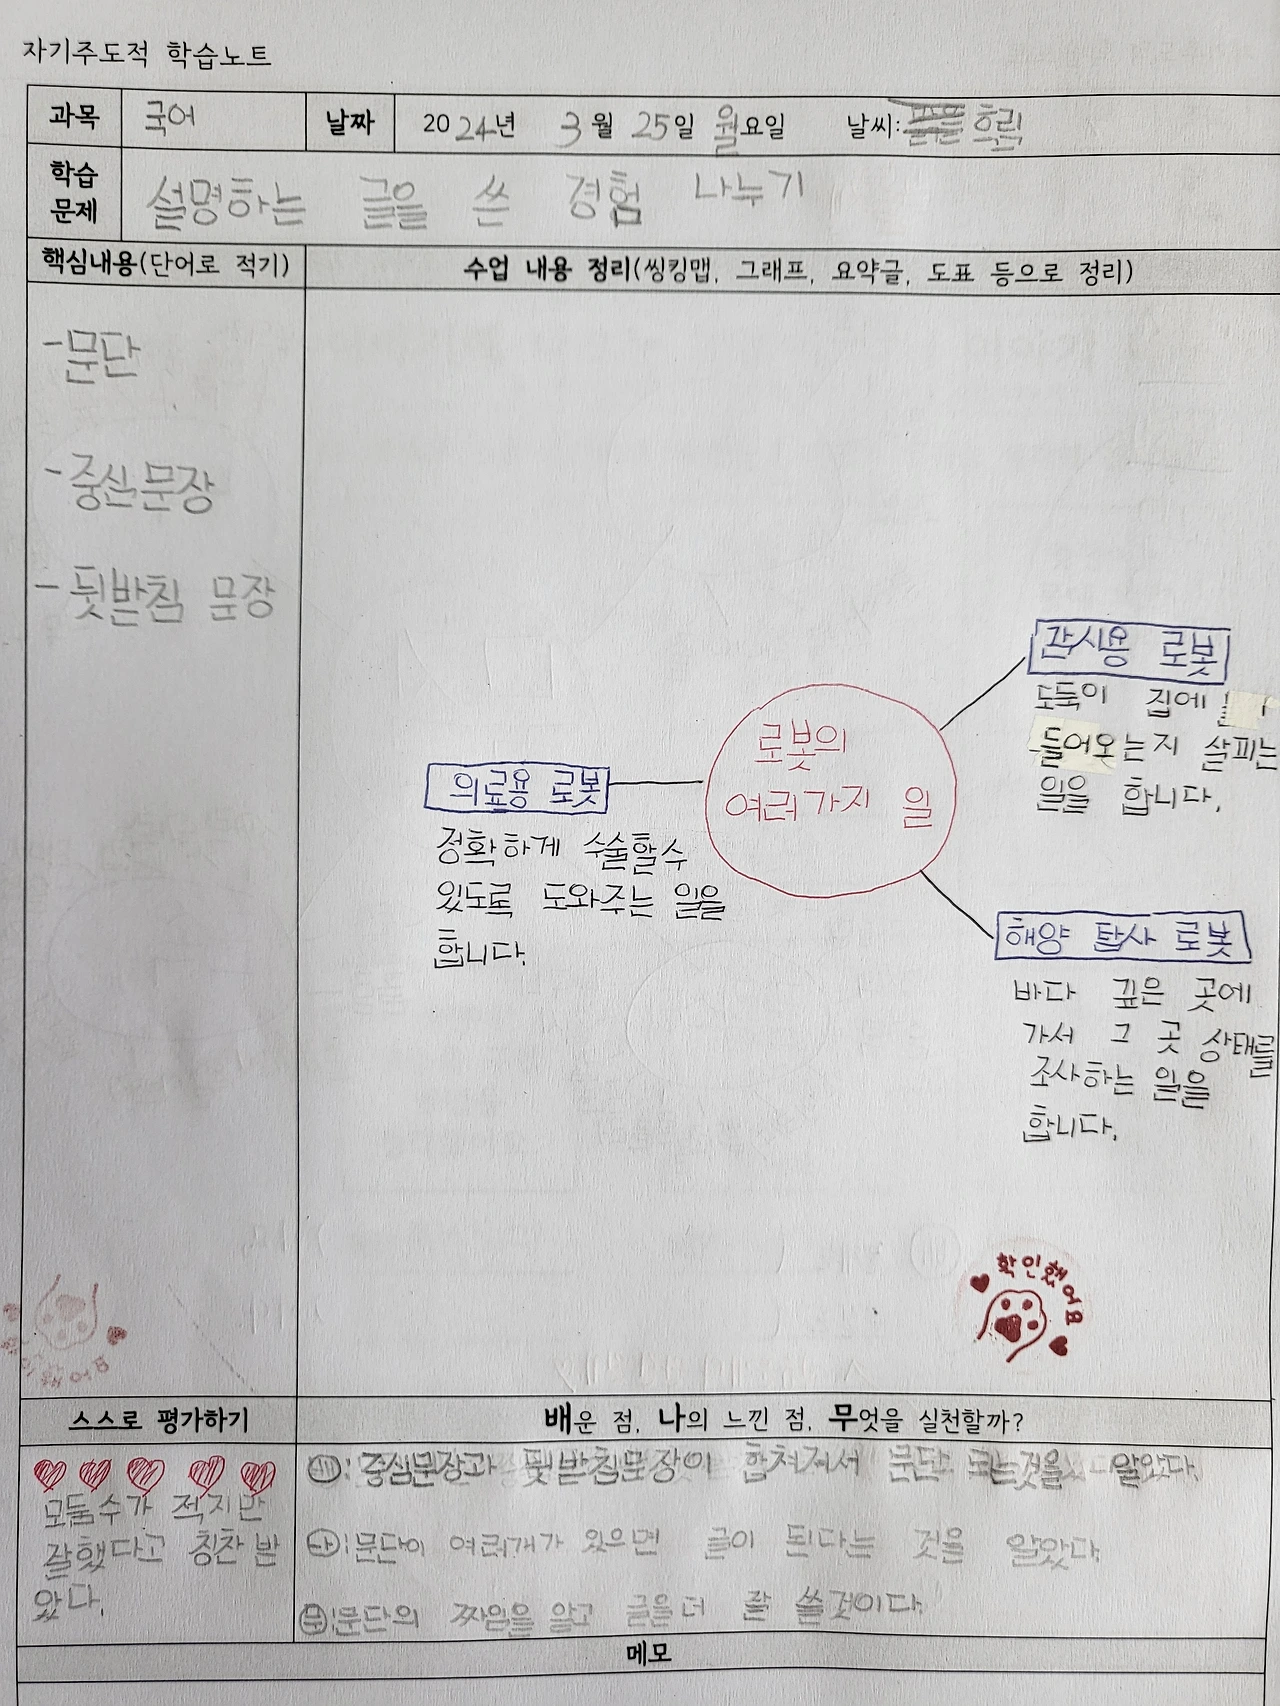 자기주도적 학습노트
과목 국어 날짜 2024년 3월 25일 월요일 날씨: 흐림
학습 문제 설명하는 글을 쓴 경험 나누기
핵심내용(단어로 적기) 수업 내용 정리(씽킹맵, 그래프, 요약글, 도표 등으로 정리)
-문단
-중심문장
-뒷받침 문장
로봇의
여러가지 일
의료용 로봇
정확하게 수술할수
있도록 도와주는 일을
합니다.
감시용 로봇
도둑이 집에
들어오는지 살피는
일을 합니다.
해양 탐사 로봇
바다 깊은 곳에
가서 그 곳 상태를
조사하는 일을
합니다.
확인했어요
스스로 평가하기
모둠수가 적지만
잘했다고 칭찬 받
았다.
배운 점, 나의 느낀 점, 무엇을 실천할까?
배: 중심문장과 뒷받침문장이 합쳐져서 문단이 되는것을 알았다.
나: 문단이 여러개가 있으면 글이 된다는 것을 알았다.
무: 문단의 짜임을 알고 글을 더 잘 쓸것이다.
메모